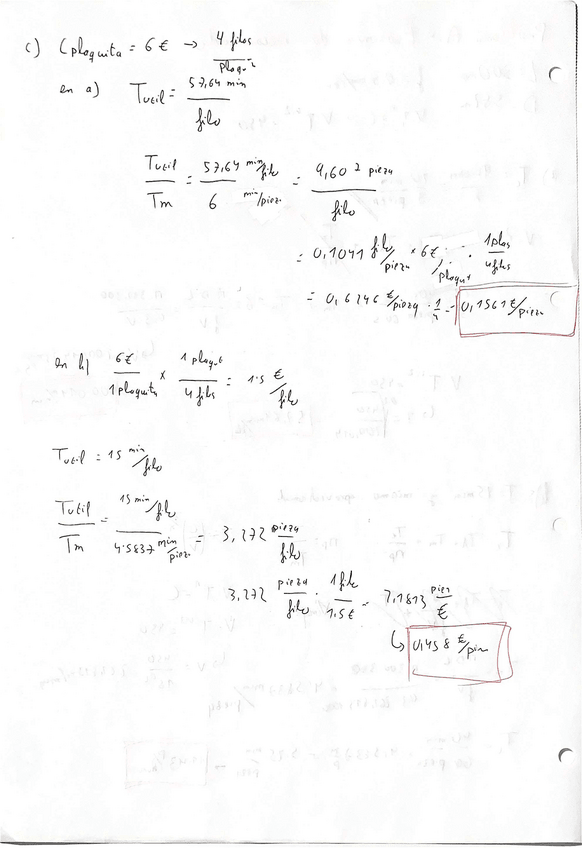 c) Cplaquita = 6 € → 4 filos / plaquit
en a) Tutil = 57,64 min / filo
Tutil / Tm = 57,64 min/filo / 6 min/pieza = 9,602 pieza / filo
= 0,1041 filo/pieza × 6€/plaquit · 1 plaq / 4 filos
= 0,6246 €/pieza · 1/4 = 0,1561 €/pieza
en b) 6€ / 1 plaquita × 1 plaquit / 4 filos = 1.5 € / filo
Tutil = 15 min/filo
Tutil / Tm = 15 min/filo / 4.5837 min/piez. = 3,272 pieza / filo
3,272 pieza / filo · 1 filo / 1.5€ = 2,1813 piez / €
↳ 0,458 €/pieza